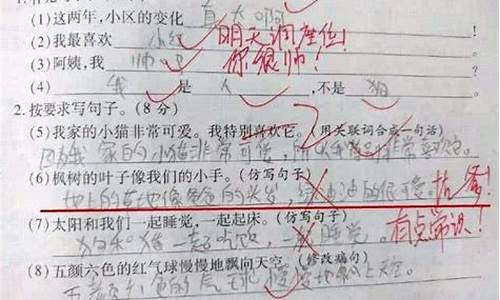 (1)这两年,小区的变化 真大啊
(2)我最喜欢 小红 明天调座位!
(3)阿姨,我 帅 你很帅!
(4) 我 是 人 ,不是 狗
2.按要求写句子。(8分)
(5)我家的小猫非常可爱。我特别喜欢它。(用关联词合成一句话)
因为我家的小猫非常可爱,所以我 非常喜欢它。
(6)枫树的叶子像我们的小手。(仿写句子)
地上的草地像爸爸的头发,绿油油的很可爱。
(7)太阳和我们一起睡觉,一起起床。(仿写句子)
狗和猪一起吃饭,一起睡觉。 有点常识!
(8)五颜六色的红气球慢慢地飘向天空。(修改病句)
五颜六色的气球慢慢地飘上天空。